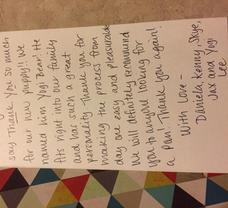 say Thank You so much
for our new puppy!! We
named him Yogi Bear. He
fits right into our family
and has such a great
personality. Thank you for
making the process from
day one easy and pleasurable
We will definitely recommend
you to anyone looking for
a Pom! Thank you again!
With Love -
Daniela, Kenny, Skye,
Jax and Yogi
Lee